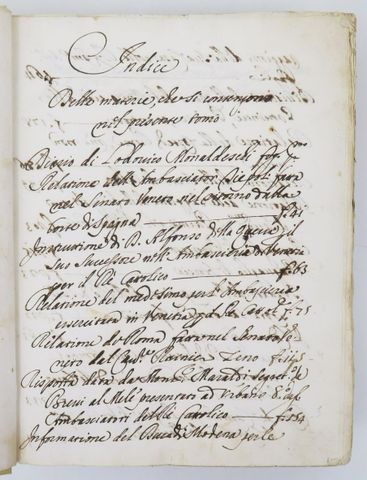 Indice
Delle materie, che si contengono
nel presente tomo
Diario di Lodovico Monaldeschi fog. mo
Relatione dell'Ambasciatori
nel Senato Veneto nel ritorno dalla
corte di Spagna f. 41
Instruttione di D. Alfonso della Queva, il
suo Successore nell'Ambasceria di Venetia
per il Rè Catolico f. 63
Relatione del medesimo per l'Ambasceria
esercitata in Venetia f. 75
Relatione di Roma fatta nel Senato
dal Cav.r Rainier Zeno
Risposta data da Mons.
Brevi presentati ad Urbano 8.
Ambasciatori del Rè Catolico f. 154
Informatione del Duca di Modena per le